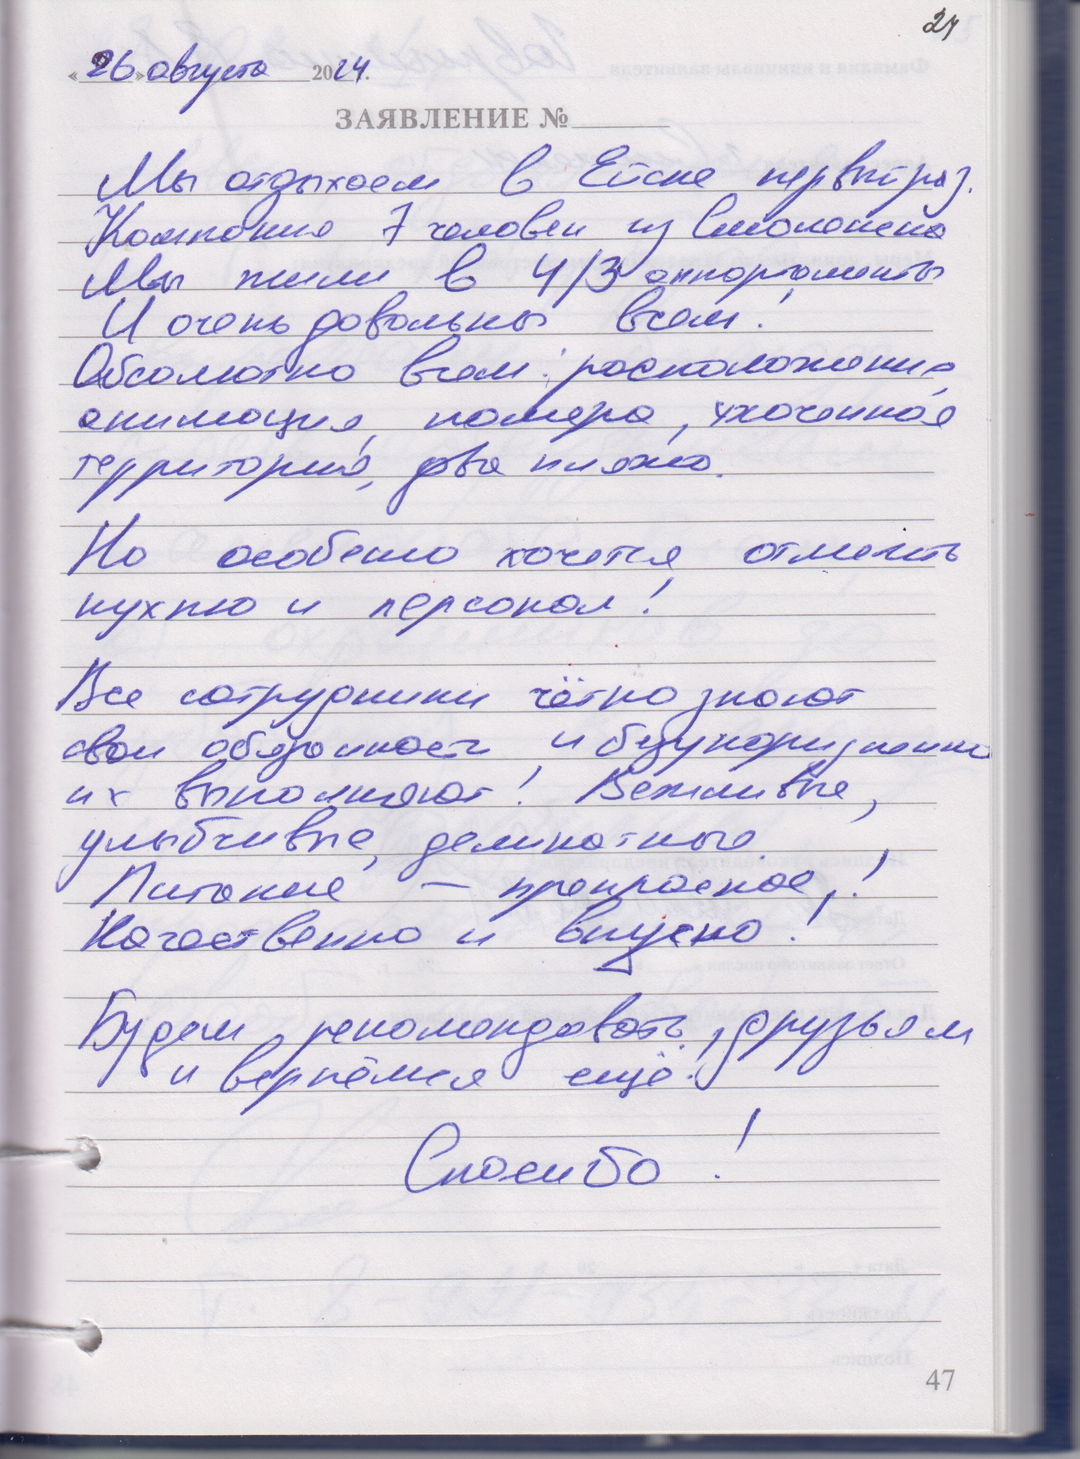 24
«26» августа 2024.
ЗАЯВЛЕНИЕ №
Мы отдыхаем в Ейске первый раз.
Компания 7 человек из Смоленска
Мы жили в 4/3 аппартаменты
И очень довольны всем!
Абсолютно всем: расположение,
анимация, номера, ухоженная
территория, два пляжа.
Но особенно хочется отметить
кухню и персонал!
Все сотрудники чётко знают
свои обязанности и безукоризненно
их выполняют! Вежливые,
улыбчивые, деликатные
Питание – прекрасное,!
Качественно и вкусно!
Будем рекомендовать друзьям
и вернёмся ещё!
Спасибо!
47